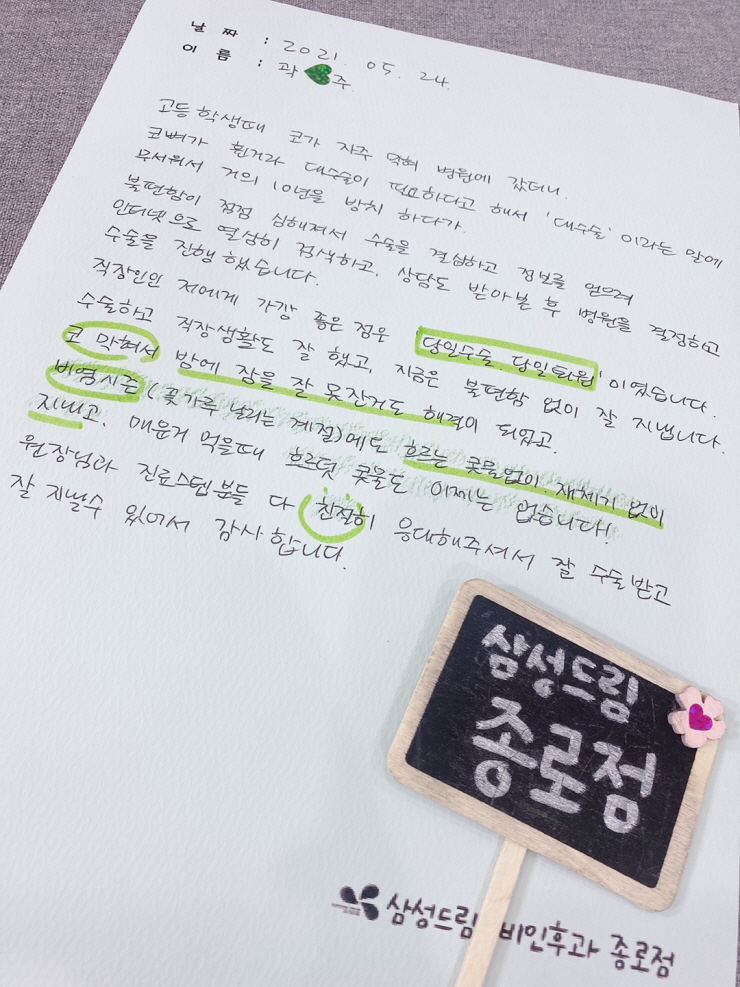 날 짜 : 2021. 05. 24.
이 름 : 곽 주
고등학생때 코가 자주 막혀 병원에 갔더니.
코뼈가 휜거라 대수술이 필요하다고 해서 '대수술' 이라는 말에
무서워서 거의 10년을 방치 하다가.
불편함이 점점 심해져서 수술을 결심하고 정보를 얻으려
인터넷으로 열심히 검색하고, 상담도 받아본 후 병원을 결정하고
수술을 진행 했습니다.
직장인인 저에게 가장 좋은 점은 '당일수술. 당일퇴원' 이였습니다.
수술하고 직장생활도 잘 했고, 지금은 불편함 없이 잘 지냅니다.
코 막혀서 밤에 잠을 잘 못잔거도 해결이 되었고.
비염시즌 (꽃가루 날리는 계절)에도 흐르는 콧물없이. 재채기 없이
지내고. 매운거 먹을때 흐르던 콧물도 이제는 없습니다!
원장님과 진료스텝분들 다 친절히 응대해주셔서 잘 수술받고
잘 지낼수 있어서 감사합니다.
삼성드림
종로점
삼성드림 비인후과 종로점